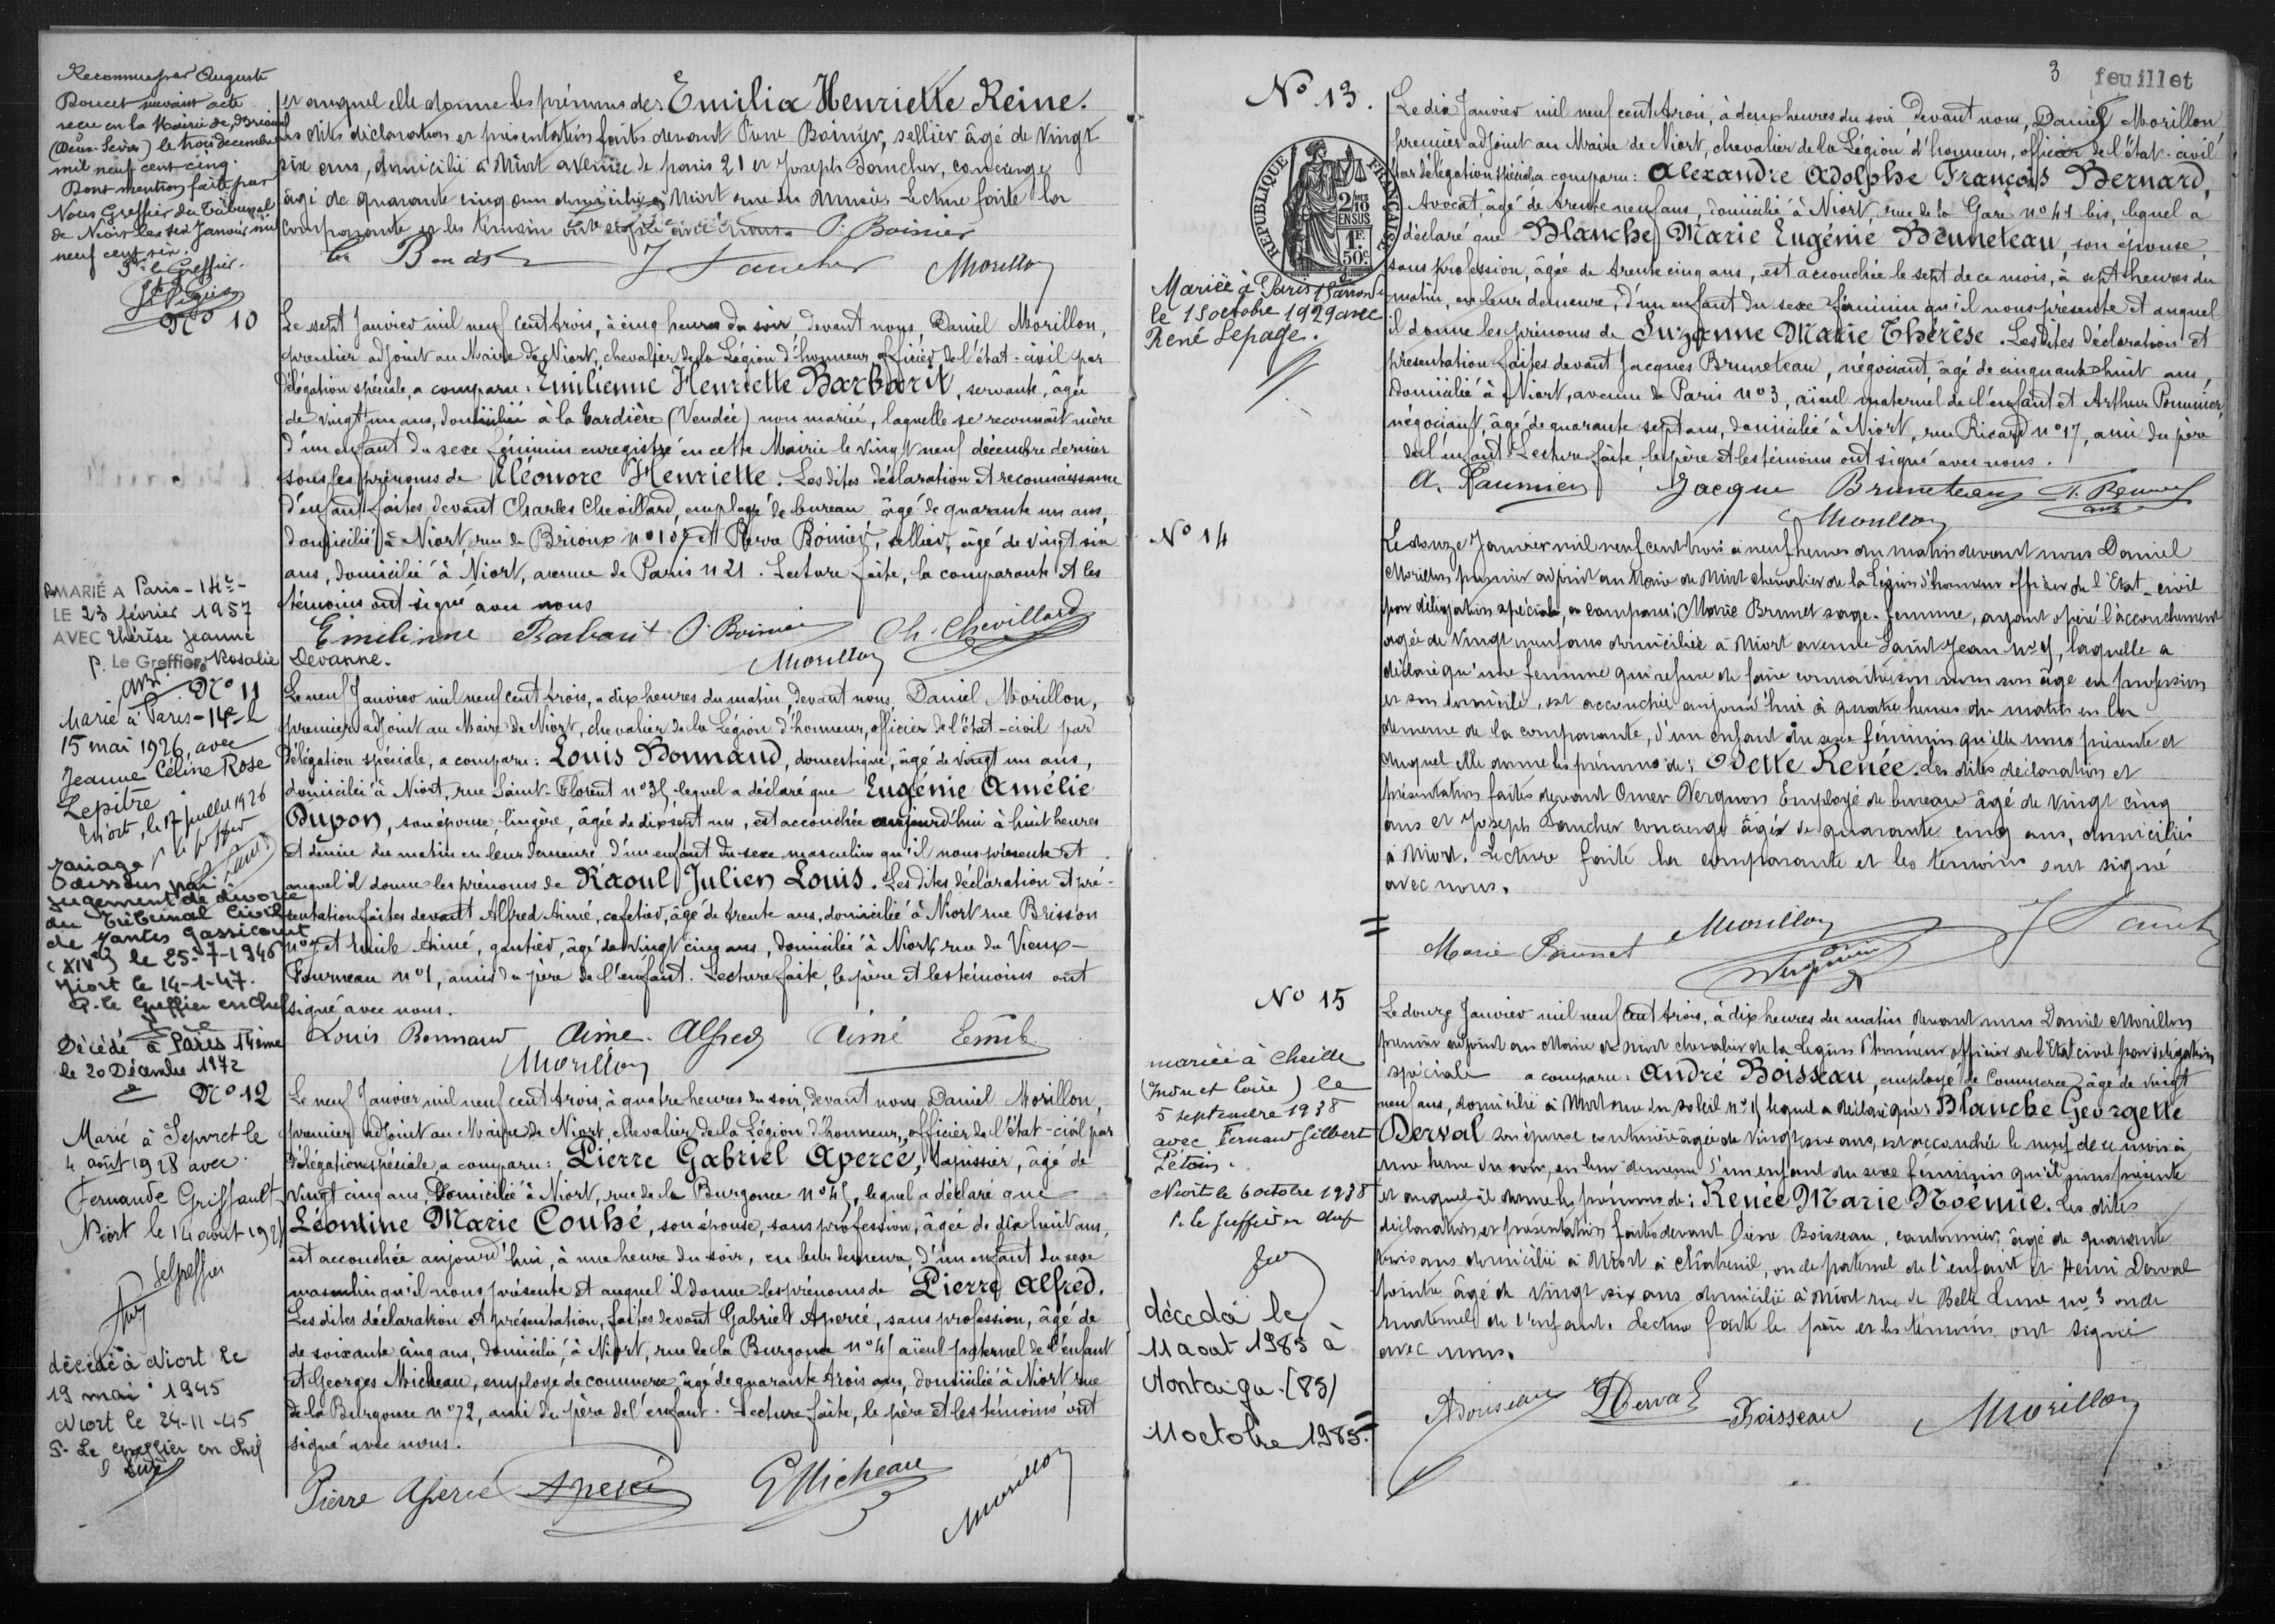 Reconnue par Auguste
Doucet suivant acte
recu en la Mairie de
(Deux-Sèvres) le trois decembre
mil neuf cent cinq.
Dont mention faite par
Nous Greffier du Tribunal
de Niort les six Janvier mil
neuf cent six.
le Greffier.
et auquel elle donne les prénoms de: Emilia Henriette Reine.
Les dites déclaration et présentation faites devant Pierre Boinier, sellier âgé de vingt
six ans, domicilié à Niort avenue de paris 21 et Joseph Faucher, concierge
âgé de quarante cinq ans domicilié à Niort rue du Musée. Lecture faite la
comparante et les témoins ont signé avec nous. P. Boinier
J Faucher Morillon
No 10
Le sept Janvier mil neuf cent trois, à cinq heures du soir devant nous, Daniel Morillon,
premier adjoint au Maire de Niort, chevalier de la Légion d'honneur, officier de l'état-civil par
délégation spéciale, a comparu: Emilienne Henriette Barbarit, servante, âgée
de vingt un ans, domiciliée à la Tardière (Vendée) non mariée, laquelle se reconnaît mère
d'un enfant du sexe féminin enregistré en cette Mairie le vingt neuf décembre dernier
sous les prénoms de Eléonore Henriette. Les dites déclaration et reconnaissance
d'enfant faites devant Charles Chevillard, employé de bureau âgé de quarante un ans
domicilié à Niort, rue de Brioux no 107 et Pierre Boinier, sellier, âgé de vingt six
ans, domicilié à Niort, avenue de Paris n 21. Lecture faite, la comparante et les
témoins ont signé avec nous
Emilienne Barbarit P. Boinier Ch. Chevillard
Morillon
REMARIÉ A Paris-14e-
LE 23 février 1957
AVEC Thérèse Jeanne
P. Le Greffier, Rosalie
Devanne.
No 11
Marié à Paris-14e le
15 mai 1926, avec
Jeanne Céline Rose
Lepître
Niort, le 17 juillet 1926
Mariage
dissous par
jugement de divorce
du Tribunal Civil
de Mantes Gassicourt
(XIVe) le 25-7-1946
Niort le 14-1-47.
P. le Greffier en chef
Décédé à Paris 14ème
le 20 Décembre 1972
Le neuf Janvier mil neuf cent trois, à dix heures du matin, devant nous, Daniel Morillon,
premier adjoint au Maire de Niort, chevalier de la Légion d'honneur, officier de l'état-civil par
délégation spéciale, a comparu: Louis Bonnaud, domestique, âgé de vingt un ans,
domicilié à Niort, rue Saint-Florent no 35, lequel a déclaré que Eugénie Amélie
Dupon, son épouse, lingère, âgée de dix sept ans, est accouchée aujourd'hui à huit heures
et demie du matin en leur demeure d'un enfant du sexe masculin qu'il nous présente et
auquel il donne les prénoms de Raoul Julien Louis. Les dites déclaration et pré-
sentation faites devant Alfred Aimé, cafetier, âgé de trente ans, domicilié à Niort rue Brisson
no 7 et Emile Aimé, gantier, âgé de vingt cinq ans, domicilié à Niort, rue du Vieux-
Fourneau no 1, amis du père de l'enfant. Lecture faite, le père et les témoins ont
signé avec nous.
Louis Bonnaud Aime. Alfred Aimé Emile
Morillon
No 12
Marié à Sepvret le
4 août 1928 avec
Fernande Griffault
Niort le 14 août 1928
le Greffier
décédé à Niort le
19 mai 1945
Niort le 24-11-45
P. Le Greffier en Chef
Le neuf Janvier mil neuf cent trois, à quatre heures du soir, devant nous Daniel Morillon,
premier adjoint au Maire de Niort, chevalier de la Légion d'honneur, officier de l'état-civil par
délégation spéciale, a comparu: Pierre Gabriel Apercé, tapissier, âgé de
vingt cinq ans, domicilié à Niort, rue de la Burgonce no 45, lequel a déclaré que
Léontine Marie Couhé, son épouse, sans profession, âgée de dix huit ans,
est accouchée aujourd'hui, à une heure du soir, en leur demeure, d'un enfant du sexe
masculin qu'il nous présente et auquel il donne les prénoms de Pierre Alfred.
Les dites déclaration et présentation, faites devant Gabriel Apercé, sans profession, âgé de
de soixante cinq ans, domicilié, à Niort, rue de la Burgonce no 45 aïeul paternel de l'enfant
et Georges Micheau, employé de commerce, âgé de quarante trois ans, domicilié à Niort rue
de la Burgonce no 72, ami du père de l'enfant. Lecture faite, le père et les témoins ont
signé avec nous.
Pierre Apercé Apercé G Micheau Morillon
3 feuillet
No 13.
RÉPUBLIQUE FRANÇAISE
2/10 EN SUS
1F. 50c
Mariée à Paris 15e arrondt
le 15 octobre 1929 avec
René Lepage.
Le dix Janvier mil neuf cent trois, à deux heures du soir devant nous, Daniel Morillon
premier adjoint au Maire de Niort, chevalier de la Légion d'honneur, officier de l'état-civil
par délégation spéciale, a comparu: Alexandre Adolphe François Bernard,
Avocat, âgé de trente neuf ans, domicilié à Niort, rue de la Gare no 41 bis, lequel a
déclaré que Blanche Marie Eugénie Bruneteau, son épouse,
sans profession, âgée de trente cinq ans, est accouchée le sept de ce mois, à sept heures du
matin, en leur demeure, d'un enfant du sexe féminin qu'il nous présente et auquel
il donne les prénoms de Suzanne Marie Thérèse. Les dites déclaration et
présentation faites devant Jacques Bruneteau, négociant, âgé de cinquante huit ans,
domicilié à Niort, avenue de Paris no 3, aïeul maternel de l'enfant et Arthur Paumier,
négociant, âgé de quarante sept ans, domicilié à Niort, rue Ricard no 17, ami du père
de l'enfant. Lecture faite, le père et les témoins ont signé avec nous.
A. Paumier Jacque Bruneteau
Morillon
No 14
Le douze Janvier mil neuf cent trois à neuf heures du matin devant nous Daniel
Morillon premier adjoint au Maire de Niort chevalier de la Légion d'honneur officier de l'Etat-civil
par délégation spéciale, a comparu: Marie Brunet sage-femme, ayant opéré l'accouchement
âgée de vingt neuf ans domiciliée à Niort avenue Saint Jean no 4, laquelle a
déclaré qu'une femme qui refuse de faire connaître son nom son âge sa profession
et son domicile, est accouchée aujourd'hui à quatre heures du matin en la
demeure de la comparante, d'un enfant du sexe féminin qu'elle nous présente et
auquel elle donne les prénoms de: Odette Renée. Les dites déclaration et
présentation faites devant Omer Vergnon Employé de bureau âgé de vingt cinq
ans et Joseph Faucher concierge âgé de quarante cinq ans, domiciliés
à Niort. Lecture faite la comparante et les témoins ont signé
avec nous.
Marie Brunet Morillon J Faucher
No 15
mariée à Cheille
(Indre et Loire) le
5 septembre 1938
avec Fernand Gilbert
Pétoin.
Niort le 6 octobre 1938
P. le Greffier en chef
décédé le
11 aout 1985 à
Montaigu (85)
11 octobre 1985.
Le douze Janvier mil neuf cent trois, à dix heures du matin devant nous Daniel Morillon
premier adjoint au Maire de Niort chevalier de la Légion d'honneur officier de l'Etat civil par délégation
spéciale a comparu: André Boisseau, employé de Commerce, âgé de vingt
neuf ans, domicilié à Niort rue du Soleil no 15 lequel a déclaré que: Blanche Georgette
Derval son épouse couturière âgée de vingt six ans, est accouchée le neuf de ce mois à
une heure du soir, en leur demeure d'un enfant du sexe féminin qu'il nous présente
et auquel il donne les prénoms de: Renée Marie Noémie. Les dites
déclaration et présentation faites devant Pierre Boisseau, cantonnier, âgé de quarante
trois ans domicilié à Niort, oncle paternel de l'enfant et Henri Derval
peintre âgé de vingt six ans domicilié à Niort rue de Belle Lune no 3 oncle
maternel de l'enfant. Lecture faite le père et les témoins ont signé
avec nous.
A Boisseau H Derval Boisseau Morillon